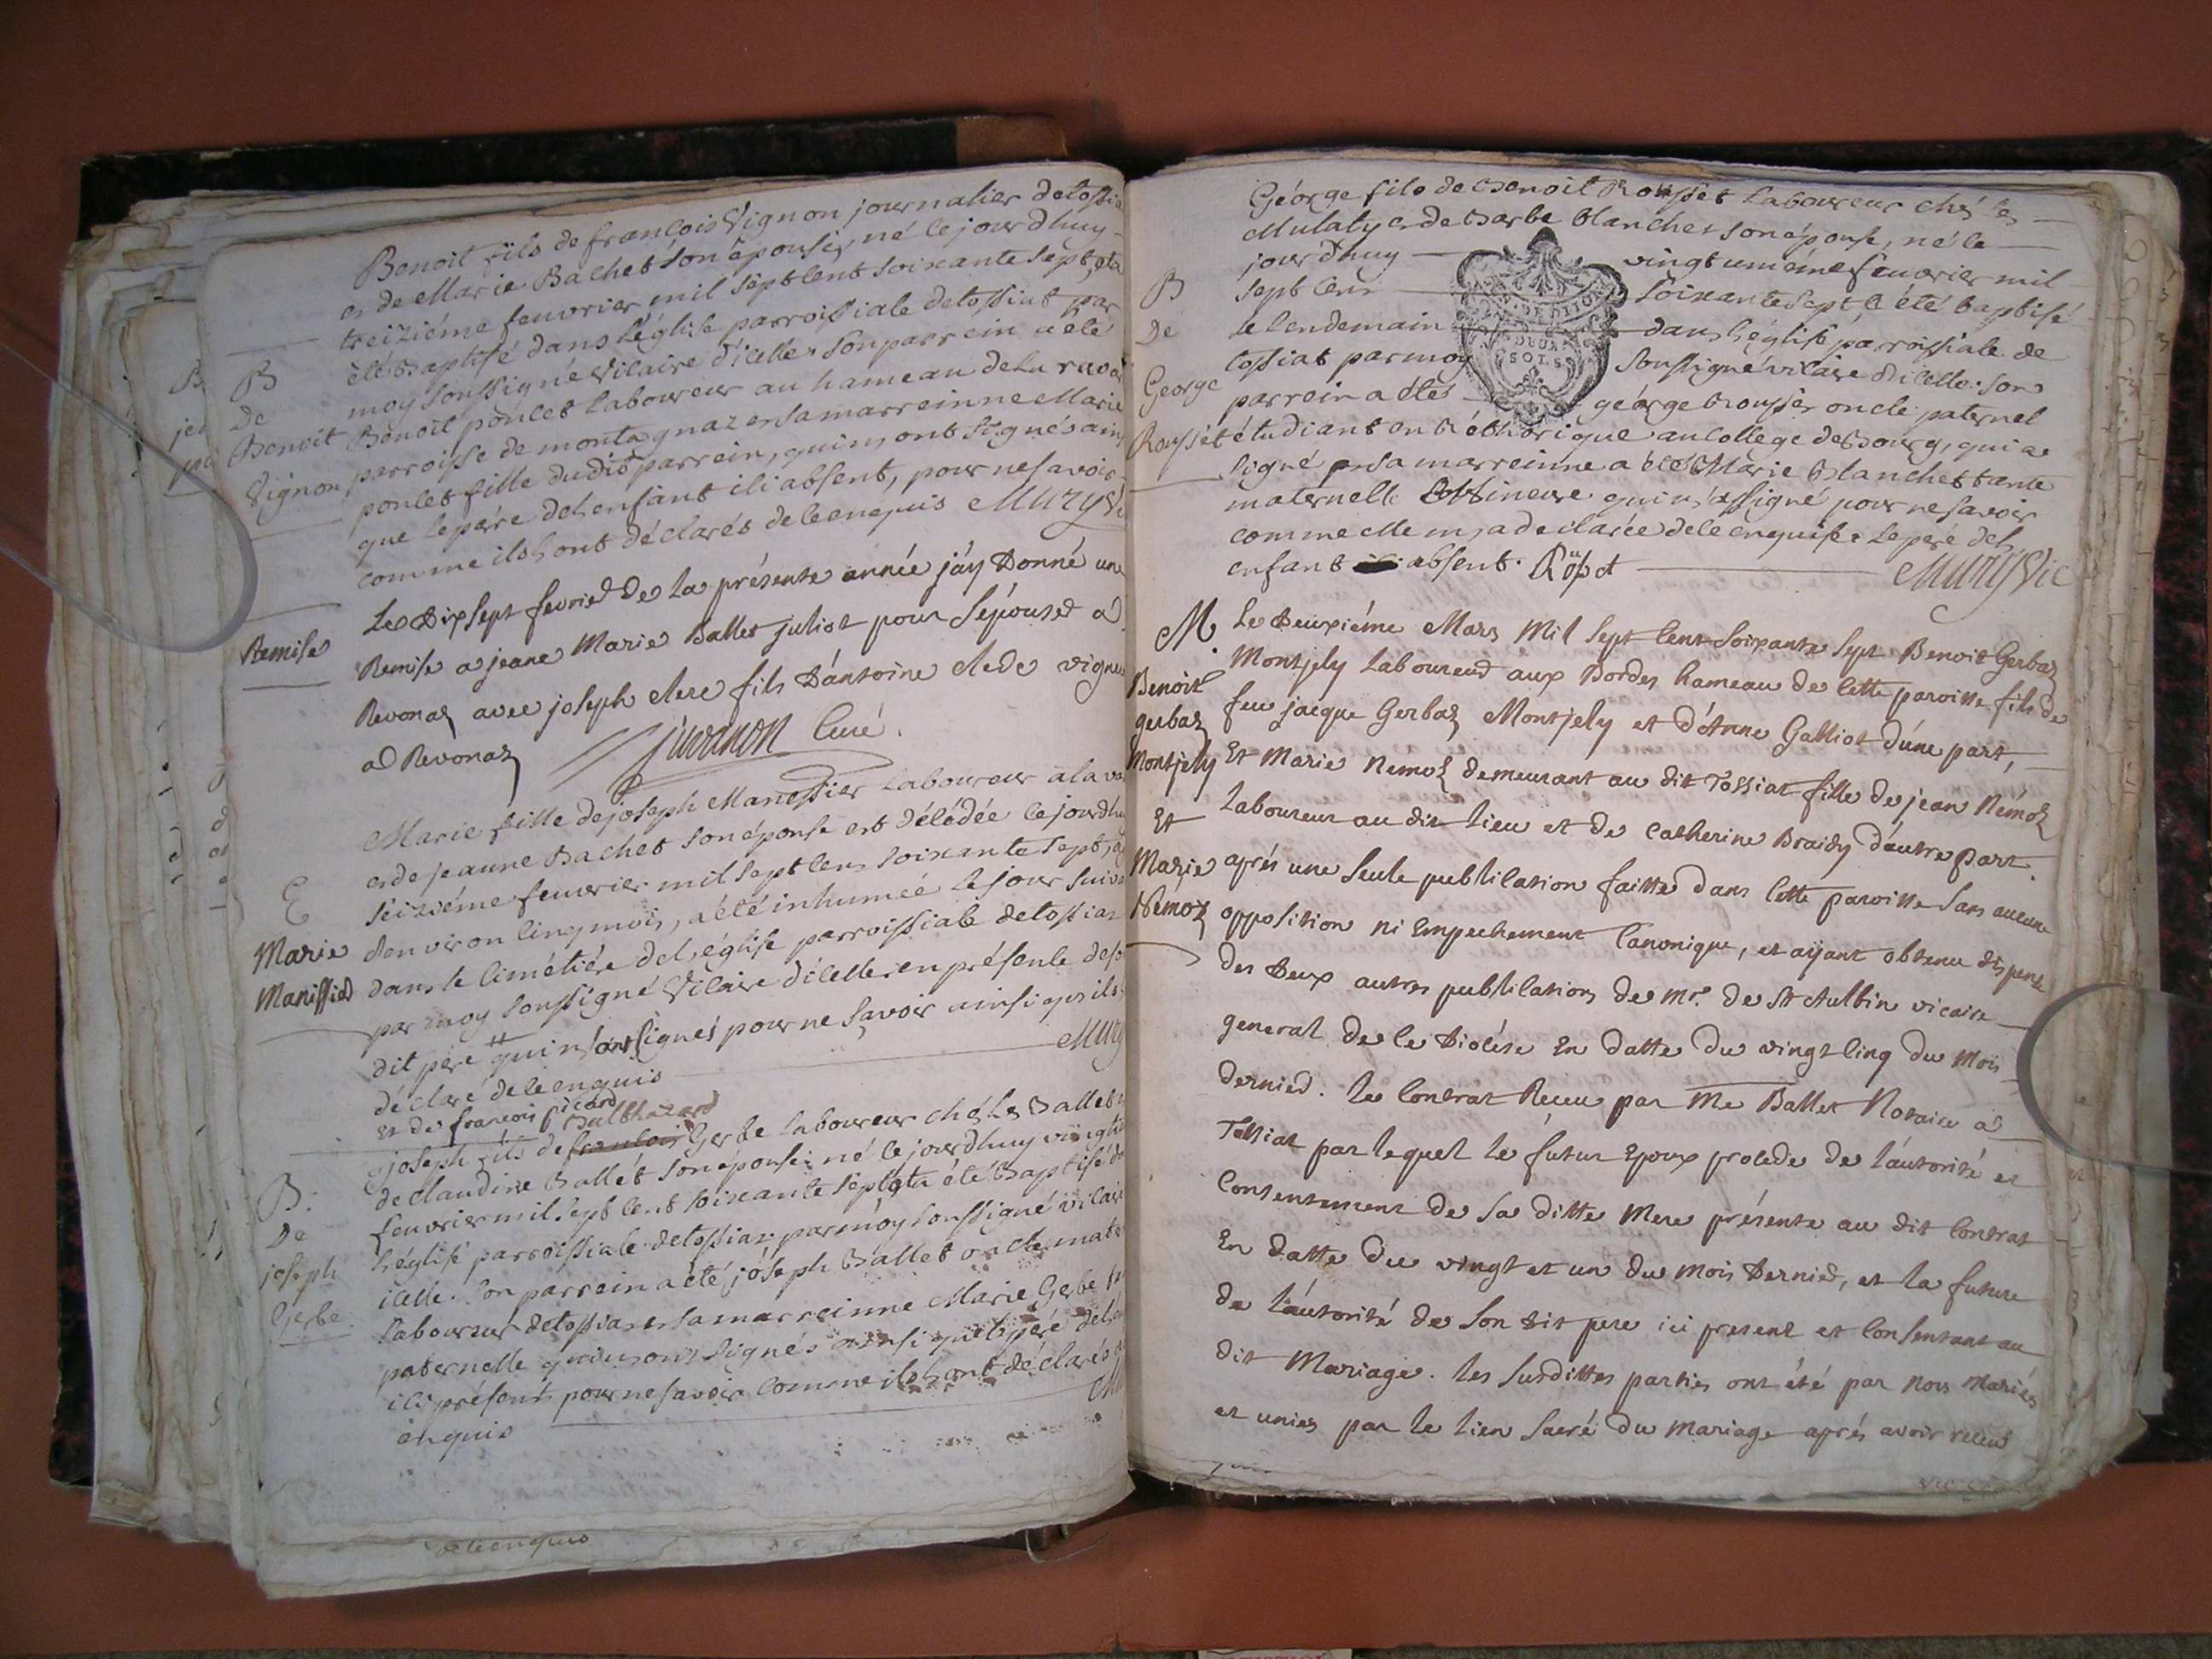 Benoit fils de francois Vignon journalier de tossia
et de Marie Bachet son épouse, né le jourdhuy
treiziéme feuvrier mil sept cent soixante sept, et a
été baptisé dans l'église parroissiale de tossiat par
moy soussigné vicaire d'icelle. son parrein a été
Benoit poncet laboureur au hameau de la ravoi
parroisse de montagnaz et sa marreinne Marie
poncet fille dudit parrein, qui n'ont signés ains
que le pére de l'enfant ici absent, pour ne savoir
comme ils l'ont déclarés de ce enquis Muzy Vi
B
De
Benoit
Vignon
Le Dix sept fevrier de la présente année j'áy Donné une
Remise a jeane Marie Ballet juliot pour s'épouser a
Revonaz avec joseph clerc fils D'antoine clerc vigne
a Revonaz
juvanon Curé.
Remise
Marie fille de joseph Manessier laboureur a la va
et de jeanne Bachet son épouse est décédée le jourdhu
seiziéme feuvrier mil sept cens soixante sept, ag
d'environ cinq mois, a été inhumée le jour suiva
dans le cimétiére de l'église parroissiale de tossiat
par moy soussigné Vicaire d'icelle en présence de so
dit pére qui n'ont signés pour ne savoir ainsi qu'ils
déclaré de ce enquis Muzy
et de francois picard
E
Marie
Manissier
Balthazard
joseph fils de francois Gerbe laboureur chés les Ballets
de claudine Ballét son épouse né le jourdhuy vingtie
feuvrier mil sept cent soixante sept, a été baptisé d
l'église parroissiale de tossiat par moy soussigné vicaire
icelle. son parrein a été joseph Ballet oncle mate
laboureur de tossiat et sa marreinne Marie Gerbe
paternelle qui n'ont signés ainsi que le pére de l'en
ici présent pour ne savoir comme ils l'ont déclarés
enquis
B.
De
joseph
Gerbe
de ce enquis
Géorge fils de Benoit Rousset laboureur chés les
Mulaty et de Barbe blanchet son épouse, né le
jourdhuy vingt uniéme feuvrier mil
sept cens soixante sept, a été baptisé
le lendemain dans l'église parroissiale de
tossiat par moy soussigné vicaire d'icelle. son
parrein a été géorge Rousset oncle paternel
étudiant en Réthorique au college de Bourg, qui a
signé et sa marreinne a été Marie Blanchet tante
maternelle mineure qui n'a signé pour ne savoir
comme elle m'a declarée de ce enquise. le peré de l'
enfant absent. Roüset Muzy Vic
B
De
George
Roussét
Le Deuxiéme Mars Mil sept Cent soixante sept Benoit Gerbaz
Montjely Laboureur aux Bordes hameau de cette paroisse fils de
feu jacque Gerbaz Montjely et d'Anne Galliot d'une part,
Et Marie Nemoz demeurant au dit Tossiat fille de jean Némoz
Laboureur au dit lieu et de Catherine Braidy d'autre part.
aprés une seule publication faitte dans cette paroisse sans aucune
opposition ni Empechement Canonique, et ayant obtenu dispense
des Deux autres publications de Mr. de St Aulbin vicaire
general de ce Diocése En datte du vingt cinq du mois
dernier. le Contrat Receu par Me Ballet Notaire a
Tossiat par lequel le futur Epoux procede de l'autorité et
Consentement de sa ditte Mere présente au dit Contrat
En datte du vingt et un du mois Dernier, et la future
de l'autorité de son dit pere ici present et Consentant au
dit Mariage. les susdittes parties ont été par nous Mariés
et unies par le lien sacré du mariage aprés avoir receu
M.
Benoit
gerbaz
Montjely
Et
Marie
Nemoz